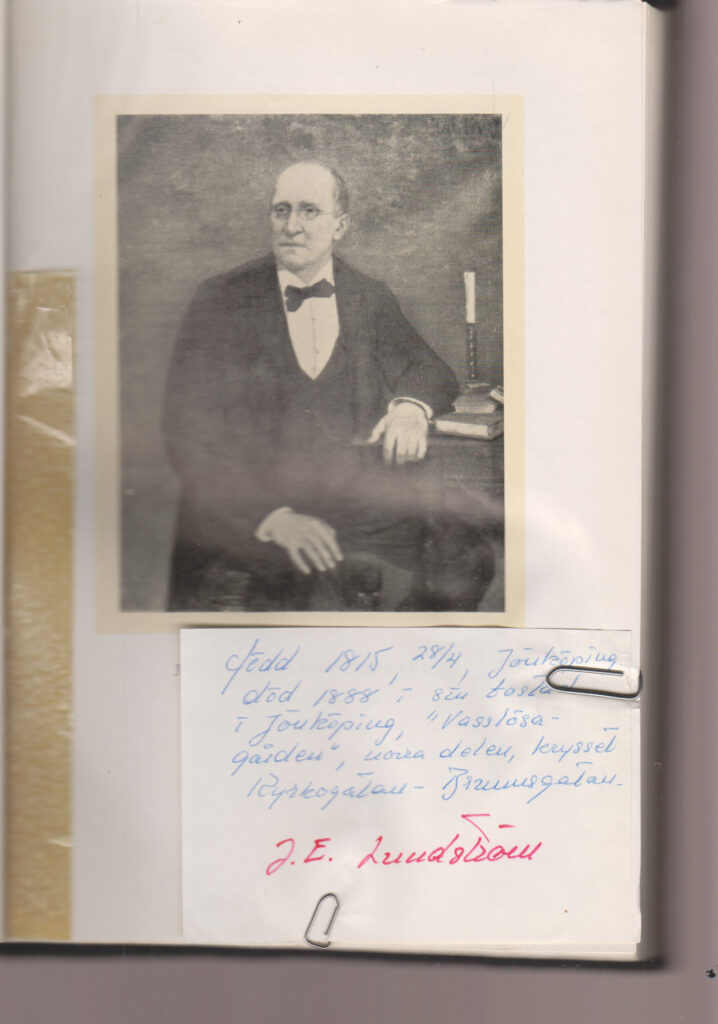 född 1815, 28/4, Jönköping
död 1888 i sin bostad
i Jönköping, "Vasslösa-
gården", norra delen, krysset
Kyrkogatan - Brunnsgatan.
J. E. Lundström